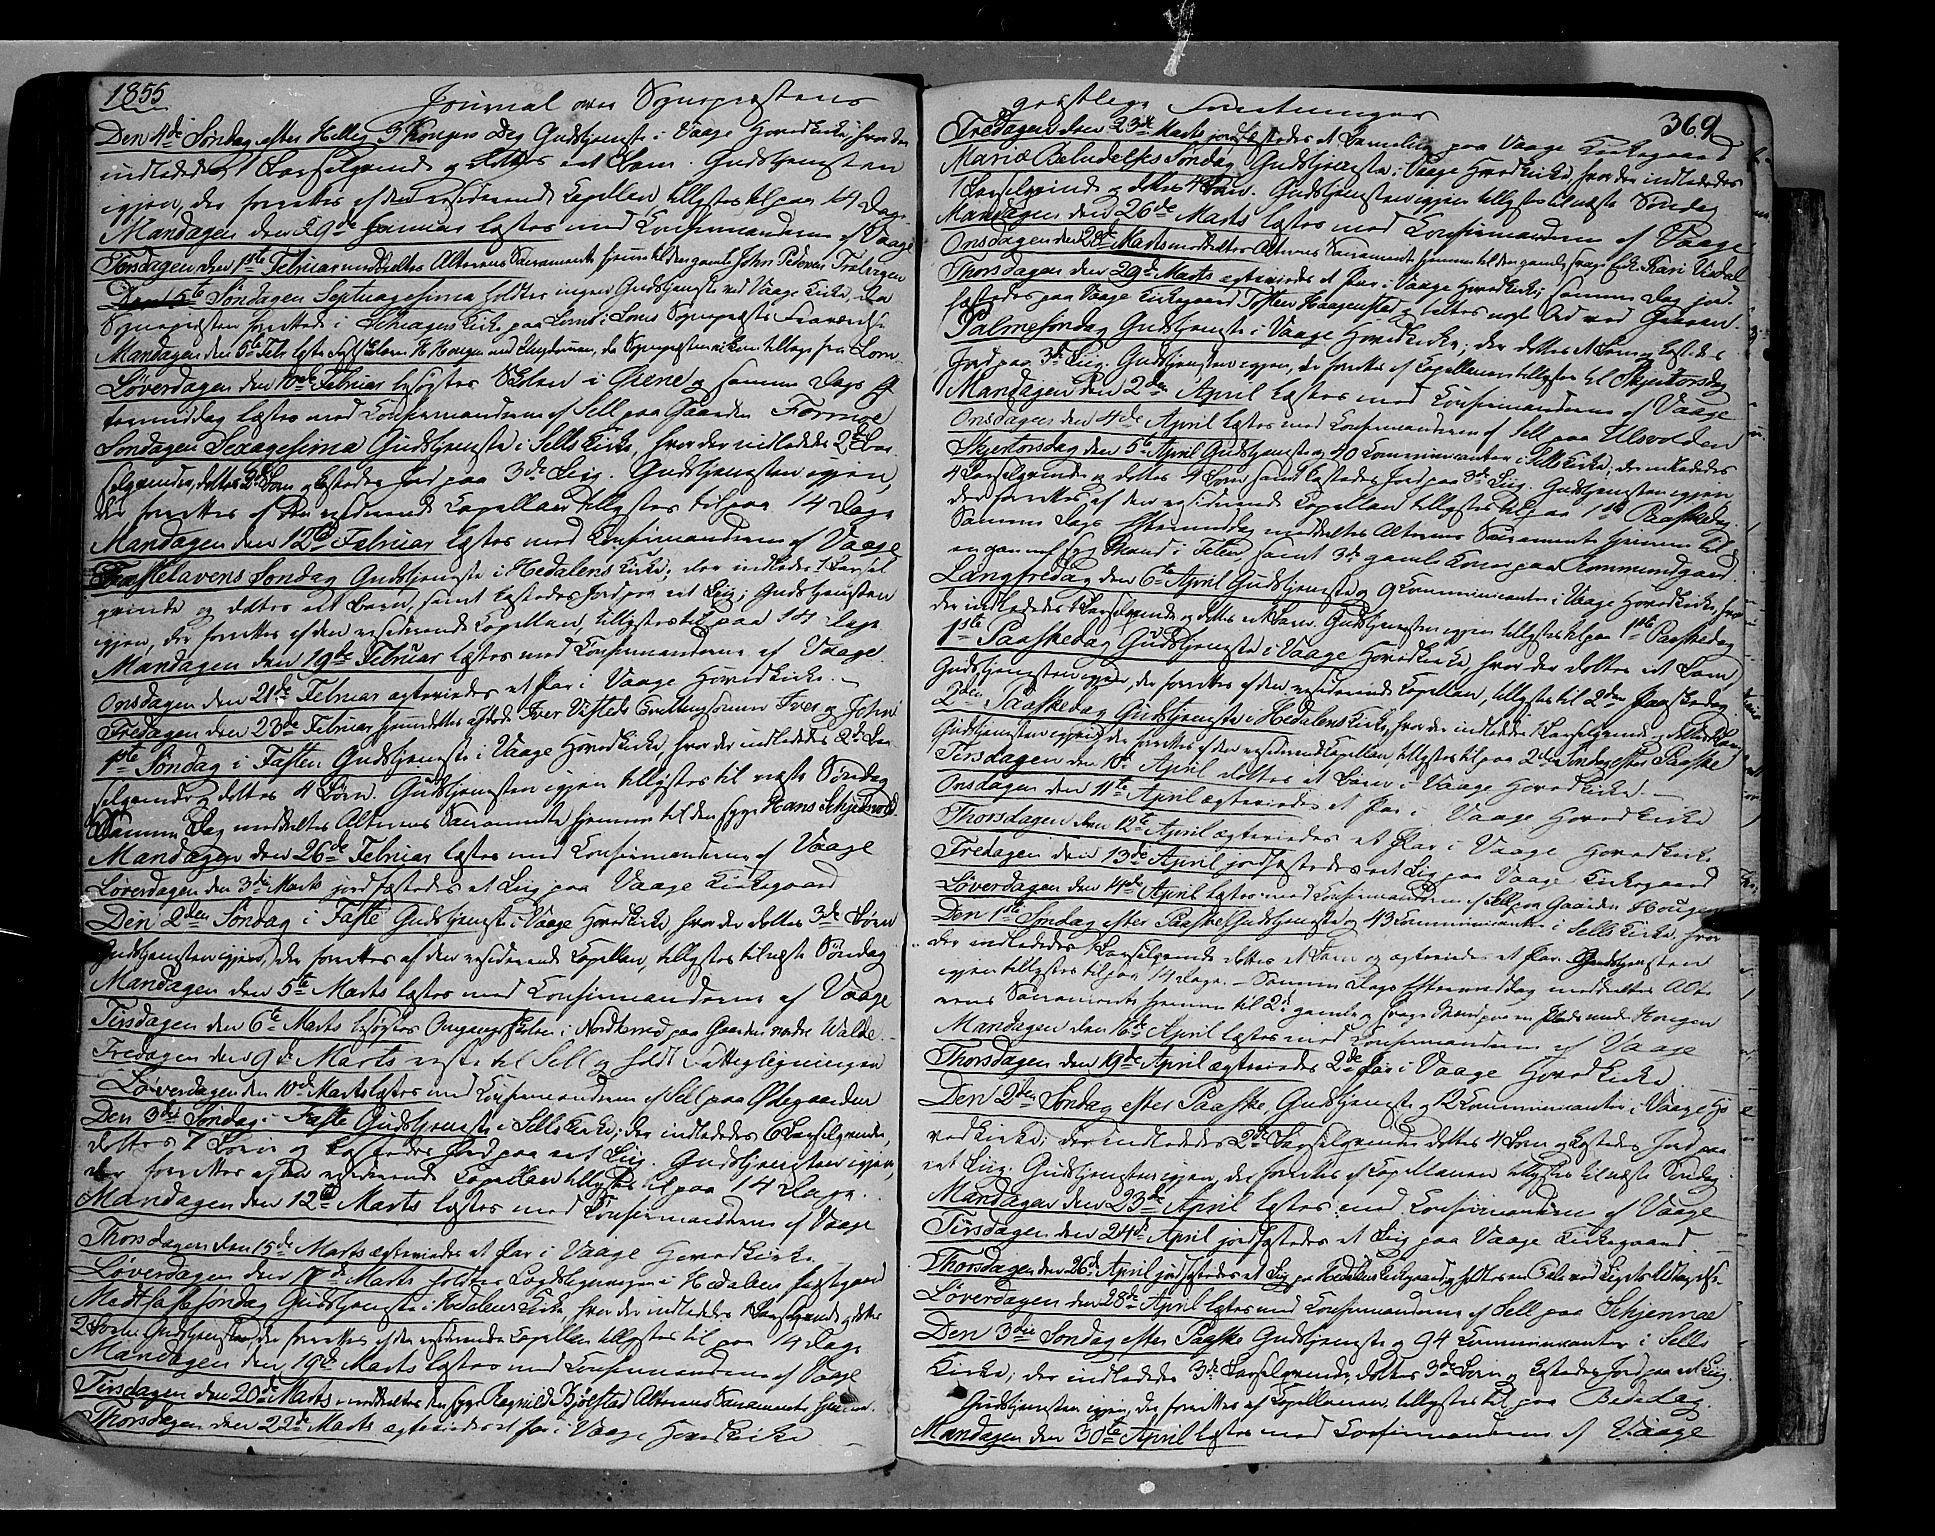 1855
Journal over Sognepræstens
Den 4de Søndag efter Hellig 3 Kongers Dag Gudstjeneste i Vaage Hovedkirke, hvor der
indlededes 1 Barselqvinde og døbtes et Barn. Gudstjenesten
igjen, der forrettes af den residerende Capellan tillystes til paa 14 Dage
Mandagen den 29de Januar læstes med Confirmanderne af Vaage
Torsdagen den 1ste Februar meddeltes Alterens Sacramente hjemme til den gamle John Pedersen
Søndagen Septuagesima holdtes ingen Gudstjeneste ved Vaage Kirke, da
Sognepræsten forrettede i Kirke paa Lom i Loms Sognepræsts Fraværelse
Mandagen den 5te Febr læste med Ungdommen, da Sognepræsten kom tilbage fra Lom
Løverdagen den 10de Februar besøgtes Skolen i Øiene og samme Dags Ef
termiddag læstes med Confirmanderne af Sell paa Gaarden Formoe
Søndagen Sexagesima Gudstjeneste i Sells Kirke, hvor der indlededes 2de Bar
selqvinder, døbtes 2de Børn og kastedes Jord paa 3de Liig. Gudstjenesten igjen,
der forrettes af den residerende Capellan tillystes til paa 14 Dage
Mandagen den 12te Februar læstes med Confirmanderne af Vaage
Fastelavens Søndag Gudstjeneste i Hedalens Kirke; der indledes 1 Barsel
qvinde og døbtes et Barn, samt kastedes Jord paa et Liig; Gudstjenesten
igjen, der forrettes af den residerende Capellan, tillystes til paa 14 Dage
Mandagen den 19de Februar læstes med Confirmanderne af Vaage.
Onsdagen den 21de Februar ægteviedes et Par i Vaage Hovedkirke. —
Fredagen den 23de Februar hjemdøbtes Iver Tvillingsønner Iver og John
1ste Søndag i Fasten Gudstjeneste i Vaage Hovedkirke, hvor der indlededes 2de Bar
selqvinder og døbtes 4 Børn. Gudstjenesten igjen tillystes til næste Søndag
Samme Dag meddeltes Alterens Sacramente hjemme til den syge Hans
Mandagen den 26de Februar læstes med Confirmanderne af Vaage
Løverdagen den 3die Marts jordfæstedes et Liig paa Vaage Kirkegaard
Den 2den Søndag i Faste Gudstjeneste i Vaage Hovedkirke hvor der døbtes 3de Børn
Gudstjenesten igjen, der forrettes af den residerende Capellan, tillystes til næste Søndag
Mandagen den 5te Marts læstes med Confirmanderne af Vaage
Tirsdagen den 6te Marts besøgtes Omgangsskolen i Nordherred paa Gaarden nedre
Fredagen den 9de Marts reiste til Sell og holdt Fattigligningen
Løverdagen den 10de Marts læstes med Confirmanderne af Sell paa Ødegaarden
Den 3die Søndag i Faste Gudstjeneste i Sells Kirke; der indlededes 6 Barselqvinder,
døbtes 7 Børn og kastedes Jord paa et Liig. Gudstjenesten igjen,
der forrettes af den residerende Capellan tillystes til paa 14 Dage.
Mandagen den 12te Marts læstes med Confirmanderne af Vaage
Thorsdagen den 15de Marts ægteviedes et Par i Vaage Hovedkirke.
Løverdagen den 17de Marts holdtes i Hedalen
Midfastesøndag Gudstjeneste i Hedalens Kirke hvor der indlededes 1 Barselqvinde og døbtes
2 Børn. Gudstjenesten, der forrettes af den residerende Capellan tillystes til paa 14 Dage
Mandagen den 19de Marts læstes med Confirmanderne af Vaage
Tirsdagen den 20de Marts meddeltes den syge Ragnild Bjølstad Alterens Sacramente hjemme.
Thorsdagen den 22de Marts ægteviedes et Par i Vaage Hovedkirke —
geistlige Forretninger
369
Fredagen den 23de Marts jordfæstedes et paa Vaage Kirkegaard
Mariæ Bebudelses Søndag Gudstjeneste i Vaage Hovedkirke, hvor der indlededes
1 Barselqvinde og døbtes 4 Børn. Gudstjenesten igjen tillystes til næste Søndag
Mandagen den 26de Marts læstes med Confirmanderne af Vaage
Onsdagen den 28de Marts meddeltes Alterens Sacramente hjemme til den gamle svage Enke Kari
Thorsdagen den 29de Marts ægteviedes et Par i Vaage Hovedkirke; samme Dag jord
fæstedes paa Vaage Kirkegaard Tosten Haagenstad og holdtes nogle Ord ved Graven.
Palmesøndag Gudstjeneste i Vaage Hovedkirke; der døbtes et Barn og kastedes
Jord paa 3de Liig. Gudstjenesten igjen, der forrettes af Capellanen tillystes til Skjertorsdag
Mandagen den 2den April læstes med Confirmanderne af Vaage
Onsdagen den 4de April læstes med Confirmanderne af Sell paa Ulsvolden
Skjertorsdag den 5te April Gudstjeneste og 40 Communicanter i Sells Kirke; der indlededes
4 Barselqvinder og døbtes 4 Børn samt kastedes Jord paa 3de Liig. Gudstjenesten igjen
der forrettes af den residerende Capellan tillystes til paa 1ste Paaskedag.
Samme Dags Eftermiddag meddeltes Alterens Sacramente hjemme til
en gammel syg Mand i samt 3de gamle Koner paa Kommundgaard
Langfredag den 6te April Gudstjeneste og 9 Communicanter i Vaage Hovedkirke, hvor
der indlededes 1 Barselqvinde og døbtes et Barn. Gudstjenesten igjen tillystes til paa 1ste Paaskedag
1ste Paaskedag Gudstjeneste i Vaage Hovedkirke, hvor der døbtes et Barn
Gudstjenesten igjen, der forrettes af den residerende Capellan, tillystes til 2den Paaskedag.
2den Paaskedag Gudstjeneste i Hedalens Kirke, hvor der indlededes 1 Barselqvinde og døbtes 1 Barn
Gudstjenesten igjen der forrettes af den residerende Capellan tillystes til paa 2den Søndag efter Paaske
Tirsdagen den 10de April døbtes et Barn i Vaage Hovedkirke. —
Onsdagen den 11te April ægteviedes et Par i Vaage Hovedkirke
Thorsdagen den 12te April ægteviedes et Par i Vaage Hovedkirke
Fredagen den 13de April jordfæstedes et Liig paa Vaage Kirkegaard
Løverdagen den 14de April læstes med Confirmanderne af Sell paa Gaarden Hougen
Den 1ste Søndag efter Paaske Gudstjeneste og 43 Communicanter i Sells Kirke, hvor
der indlededes 1 Barselqvinde døbtes et Barn og ægteviedes et Par. Gudstjenesten
igjen tillystes til paa 14 Dage. — Samme Dags Eftermiddag meddeltes Alte
rens Sacramente hjemme til 2de gamle og svage Mænd paa en Plads under Hougen
Mandagen den 16de April læstes med Confirmanderne af Vaage
Thorsdagen den 19de April ægteviedes 2de Par i Vaage Hovedkirke.
Den 2den Søndag efter Paaske, Gudstjeneste og 12 Communicanter i Vaage Ho
vedkirke; der indlededes 2de Barselqvinder døbtes 4 Børn og kastedes Jord paa
et Liig. Gudstjenesten igjen, der forrettes af Capellanen tillystes til næste Søndag.
Mandagen den 23de April læstes med Confirmanderne af Vaage
Tirsdagen den 24de April jordfæstedes et Liig paa Vaage Kirkegaard.
Thorsdagen den 26de April jordfæstedes et Liig paa Hedalens Kirkegaard og holdtes en Tale ved Ligets
Løverdagen den 28de April læstes med Confirmanderne af Sell paa Schjennæ
Den 3die Søndag efter Paaske Gudstjeneste og 94 Communicanter i Sells
Kirke; der indlededes 3de Barselqvinder, døbtes 3de Børn og kastedes Jord paa et Liig.
Gudstjenesten igjen, der forrettes af Capellanen, tillystes til paa Bededag.
Mandagen den 30te April læstes med Confirmanderne af Vaage